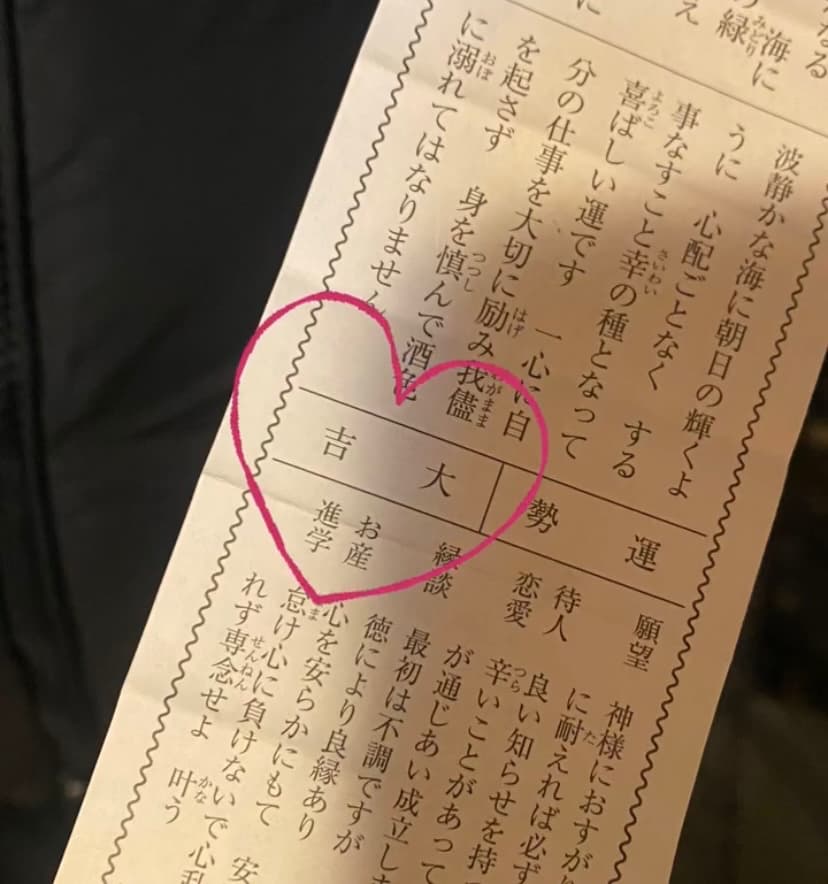 なる
海に
緑
え
に
波静かな海に朝日の輝くよ
うに 心配ごとなく する
事なすこと幸の種となって
喜ばしい運です 一心に自
分の仕事を大切に励み我儘
を起さず 身を慎んで酒色
に溺れてはなりません
運勢 大吉
願望 神様におすがり
に耐えれば必ず
待人 良い知らせを持
恋愛 辛いことがあって
が通じあい成立し
縁談 最初は不調ですが
徳により良縁あり
お産 心を安らかにもて 安
進学 怠け心に負けないで心乱
れず専念せよ 叶う